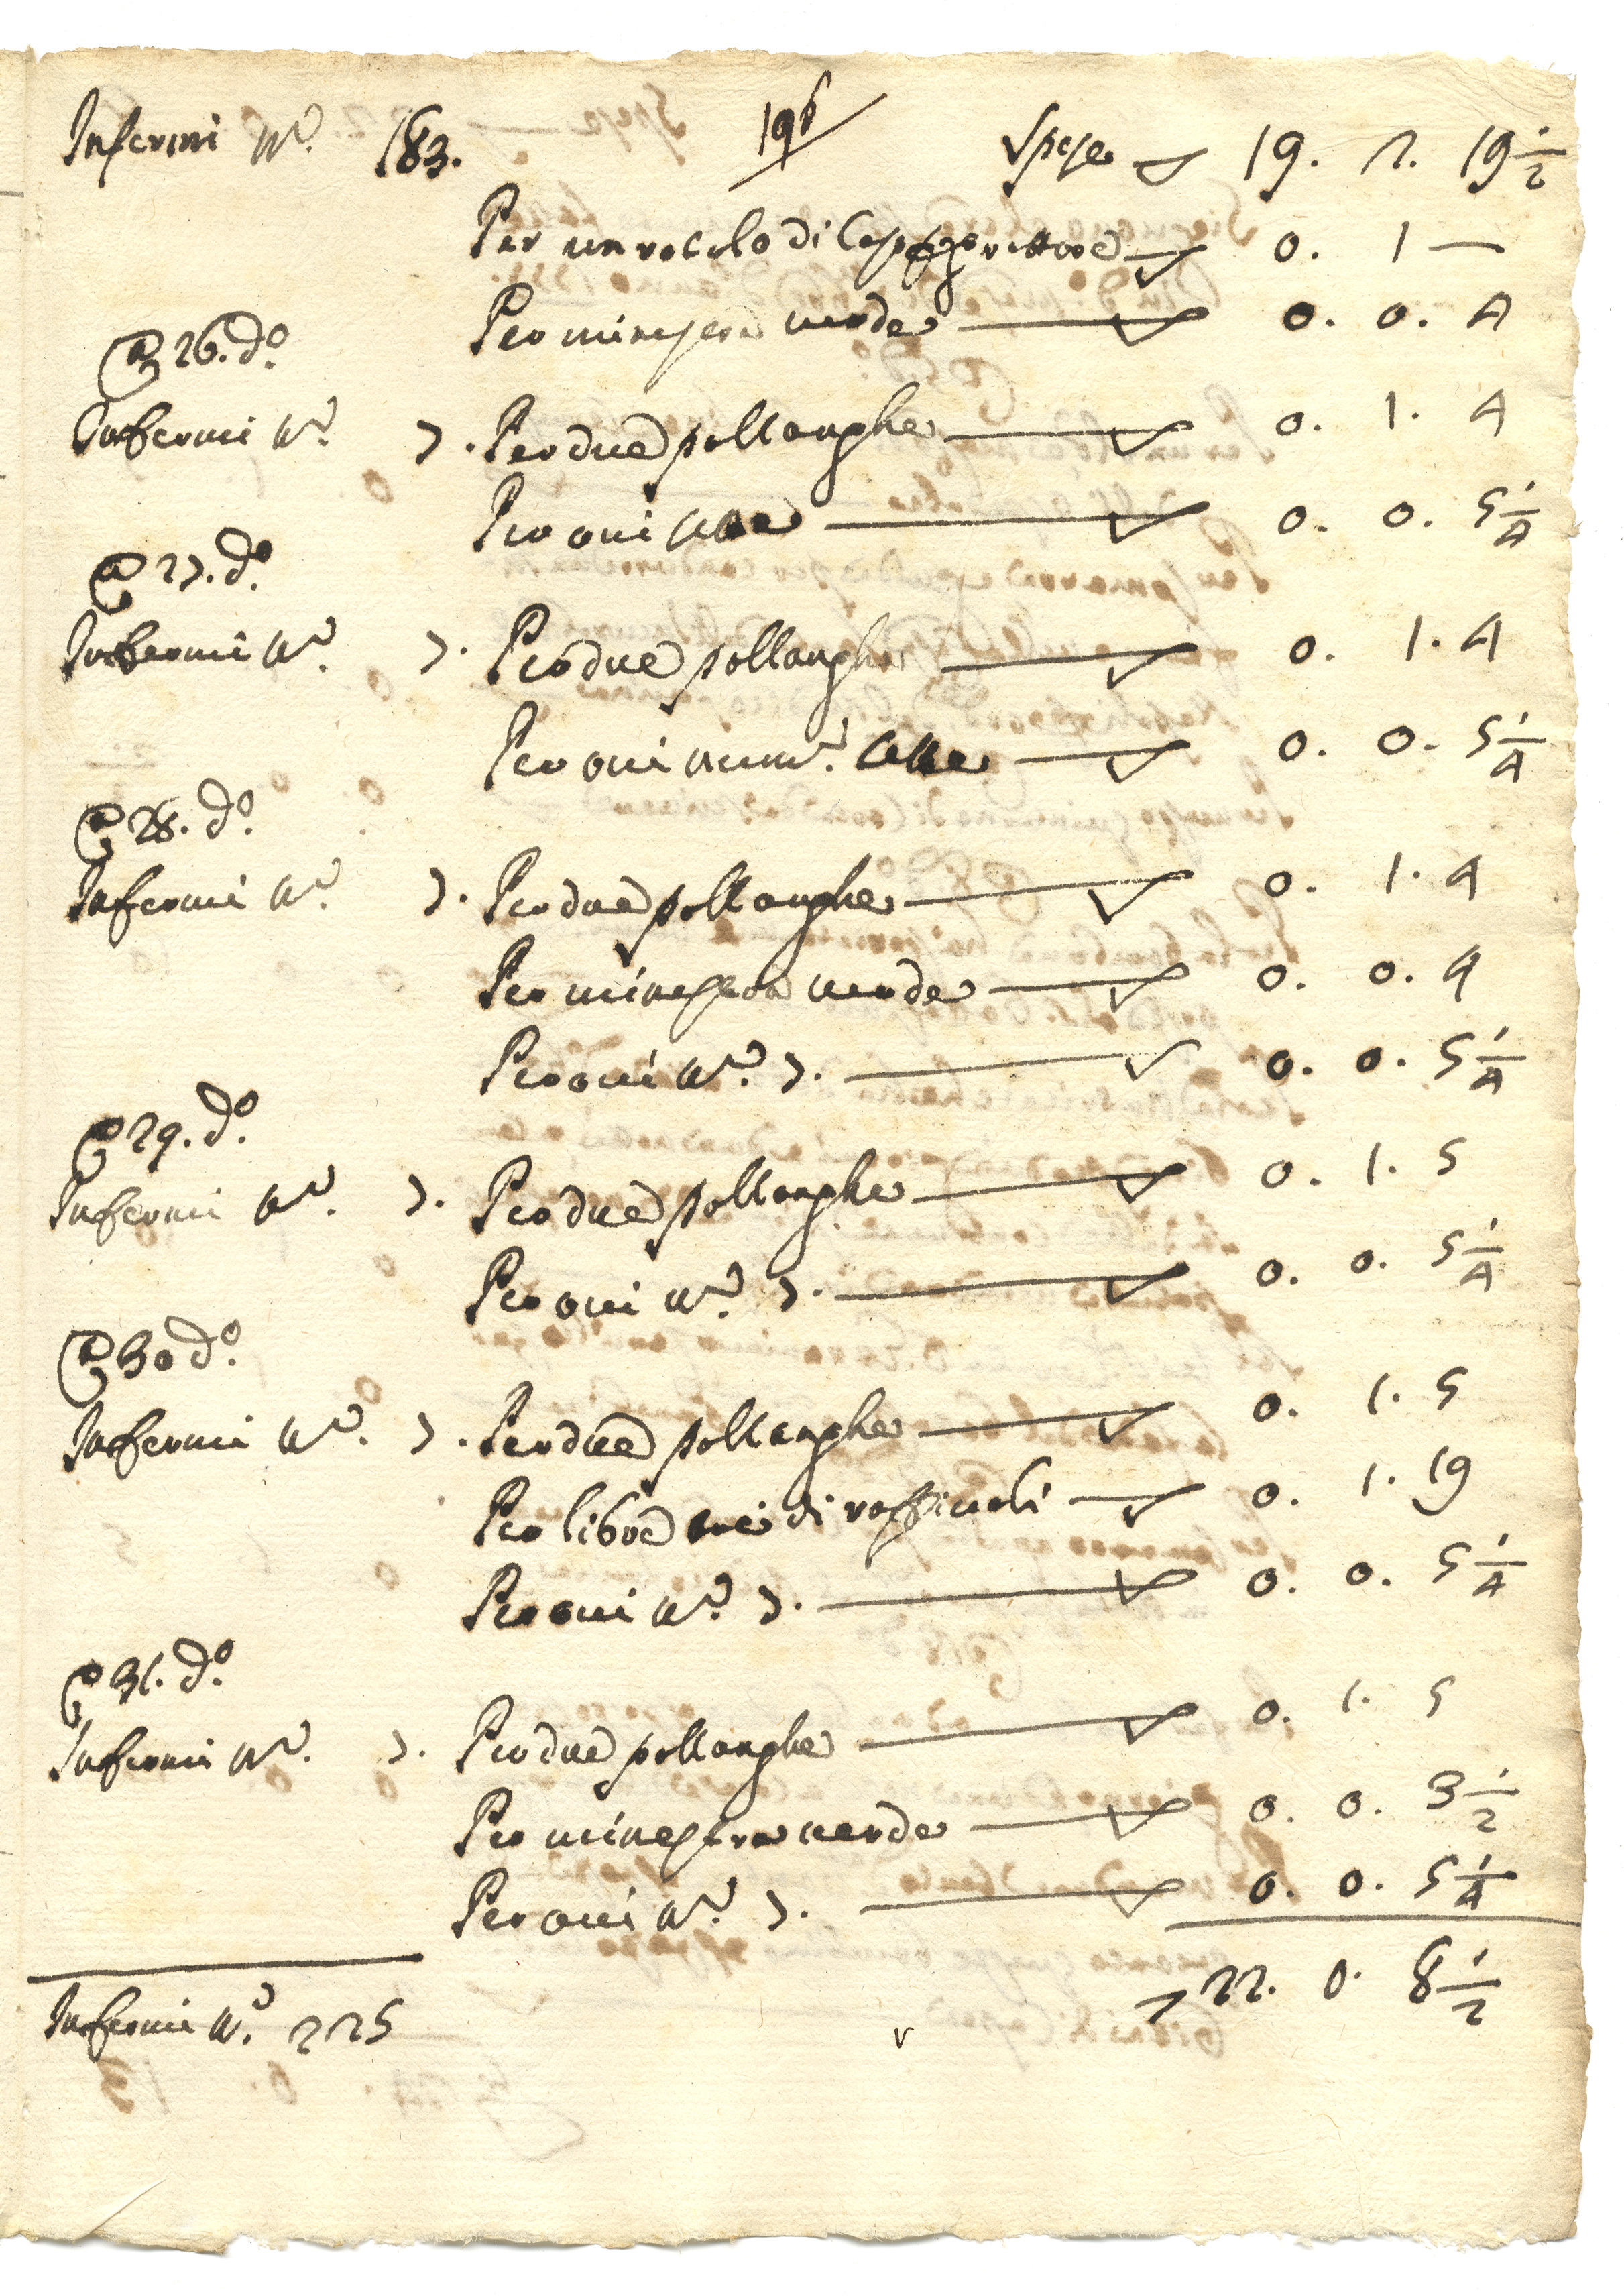 Infermi N.º 183. 196 Spese 19. 2. 19 1/2
Per un rotolo di 0. 1 —
Per minestra verde 0. 0. 4
A 26. d.º
Infermi N.º 7. Per due pollanghe 0. 1. 4
Per ovi sette 0. 0. 5 1/4
A 27. d.º
Infermi N.º 7. Per due pollanghe 0. 1. 4
Per ovi num.º sette 0. 0. 5 1/4
A 28. d.º
Infermi N.º 7. Per due pollanghe 0. 1. 4
Per minestra verde 0. 0. 4
Per ovi N.º 7. 0. 0. 5 1/4
A 29. d.º
Infermi N.º 7. Per due pollanghe 0. 1. 5
Per ovi N.º 7. 0. 0. 5 1/4
A 30 d.º
Infermi N.º 7. Per due pollanghe 0. 1. 5
Per libre tre di raffiuoli 0. 1. 19
Per ovi N.º 7. 0. 0. 5 1/4
A 31. d.º
Infermi N.º 7. Per due pollanghe 0. 1. 5
Per minestra verde 0. 0. 3 1/2
Per ovi N.º 7. 0. 0. 5 1/4
Infermi N.º 225 22. 0. 8 1/2